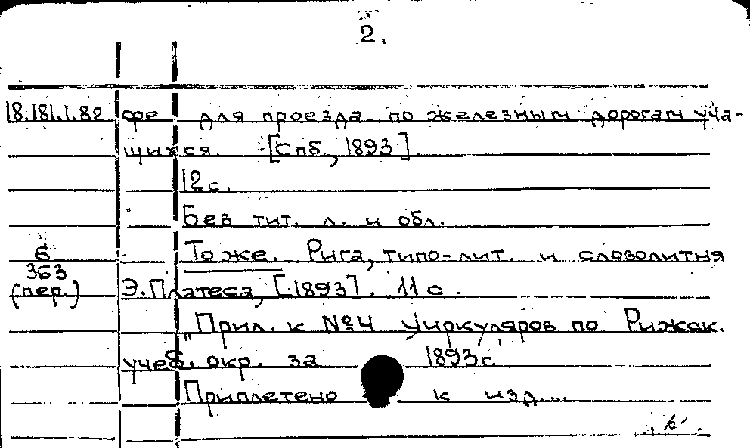 2.
18.181.1.82 фе для проезда по железным дорогам уча-
щихся. [Спб, 1893].
12 с.
Без тит. л. и обл.
То же. Рига, типо-лит. и словолитня
6
363
(пер.) Э. Платеса, [1893]. 11 с.
"Прил. к №4 Циркуляров по Рижск.
учеб. окр. за 1893 г.
Приплетено к изд...